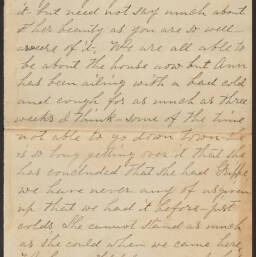 it. But need not say much about
her beauty as you are so well
aware of it. We are all able to
be about the house now but Ann
has been ailing with a bad cold
and cough for as much as three
weeks I think - some of the time
not able to go down town. She
is so long getting over it that she
has concluded that she had Grippe
we have never any of us given
up that we had it before - just
colds. She cannot stand as much
as she could when we came here,